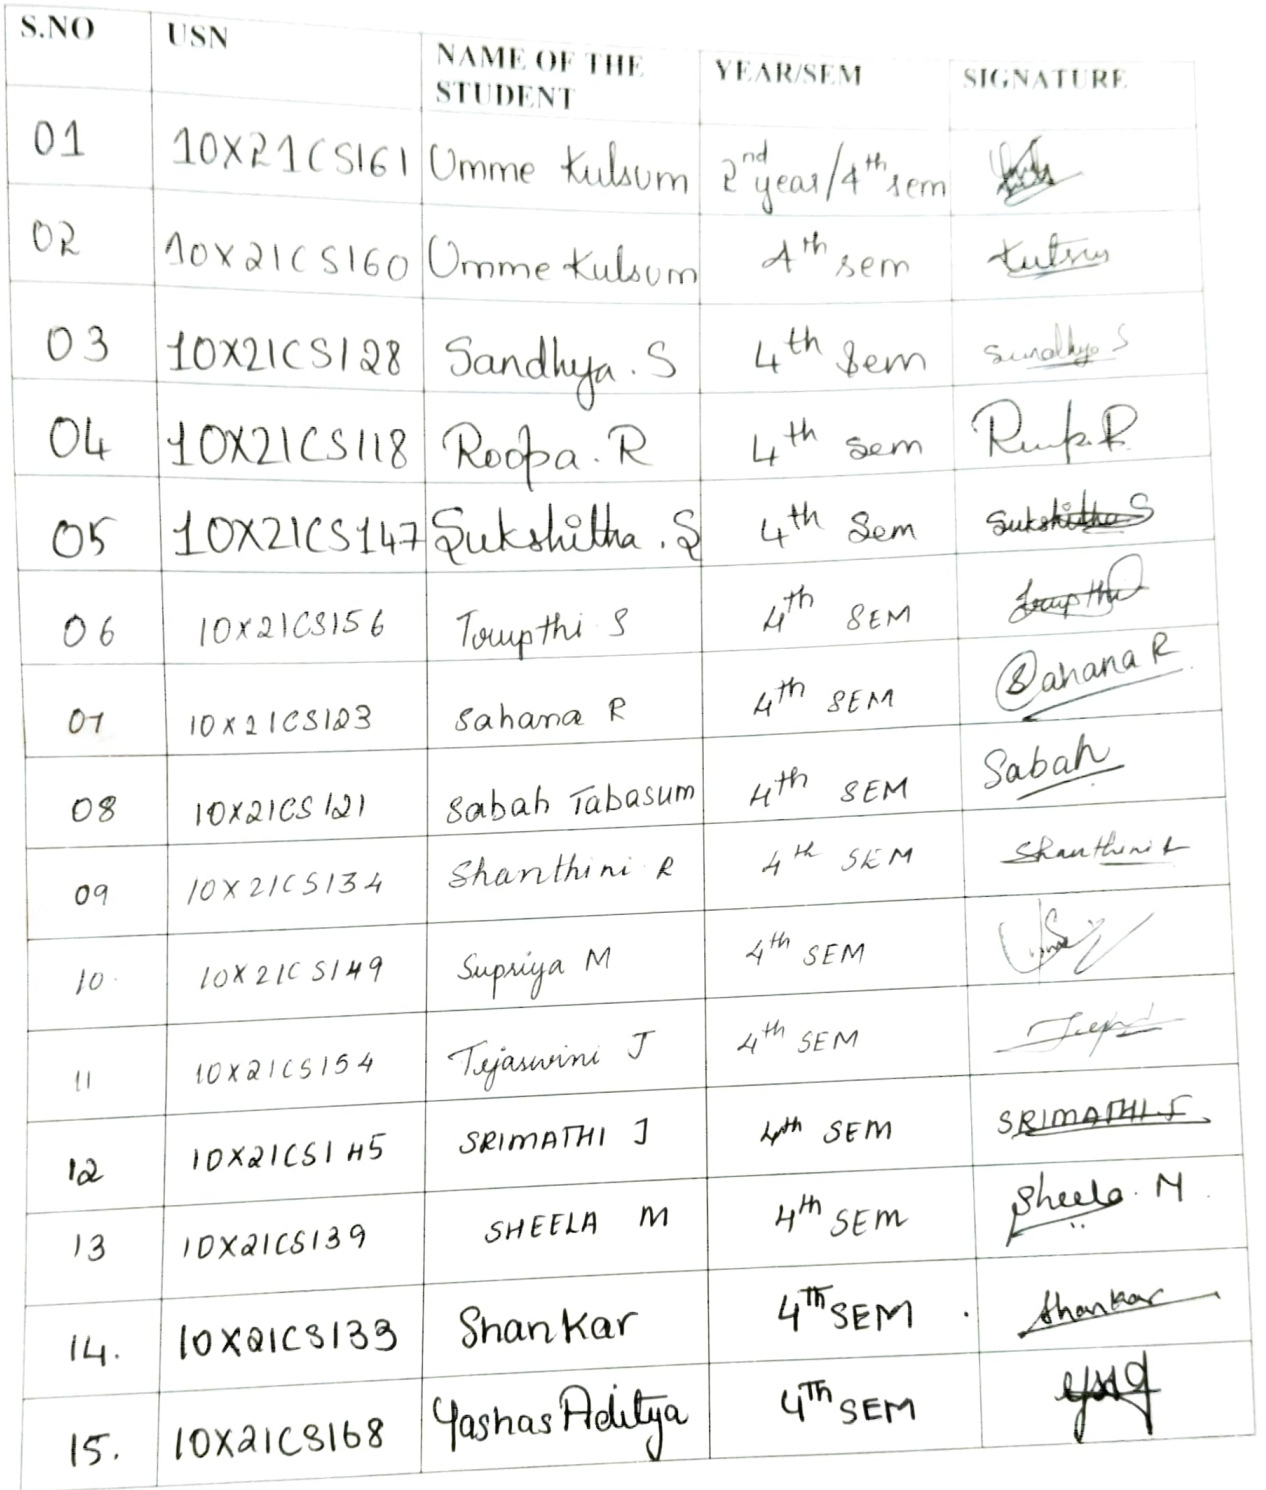 S.NO USN NAME OF THE STUDENT YEAR/SEM SIGNATURE
01 10X21CS161 Umme Kulsum 2nd year/4th sem
02 10X21CS160 Umme Kulsum 4th sem
03 10X21CS128 Sandhya . S 4th Sem Sandhya S
04 10X21CS118 Roopa . R 4th Sem
05 10X21CS147 Sukshitha . S 4th Sem Sukshitha S
06 10X21CS156 Trupthi S 4th SEM Trupthi
07 10X21CS123 Sahana R 4th SEM Sahana R
08 10X21CS121 Sabah Tabasum 4th SEM Sabah
09 10X21CS134 Shanthini R 4th SEM Shanthini R
10. 10X21CS149 Supriya M 4th SEM
11 10X21CS154 Tejaswini J 4th SEM
12 10X21CS145 SRIMATHI J 4th SEM SRIMATHI J
13 10X21CS139 SHEELA M 4th SEM Sheela . M
14. 10X21CS133 Shankar 4Th SEM Shankar
15. 10X21CS168 Yashas Aditya 4Th SEM